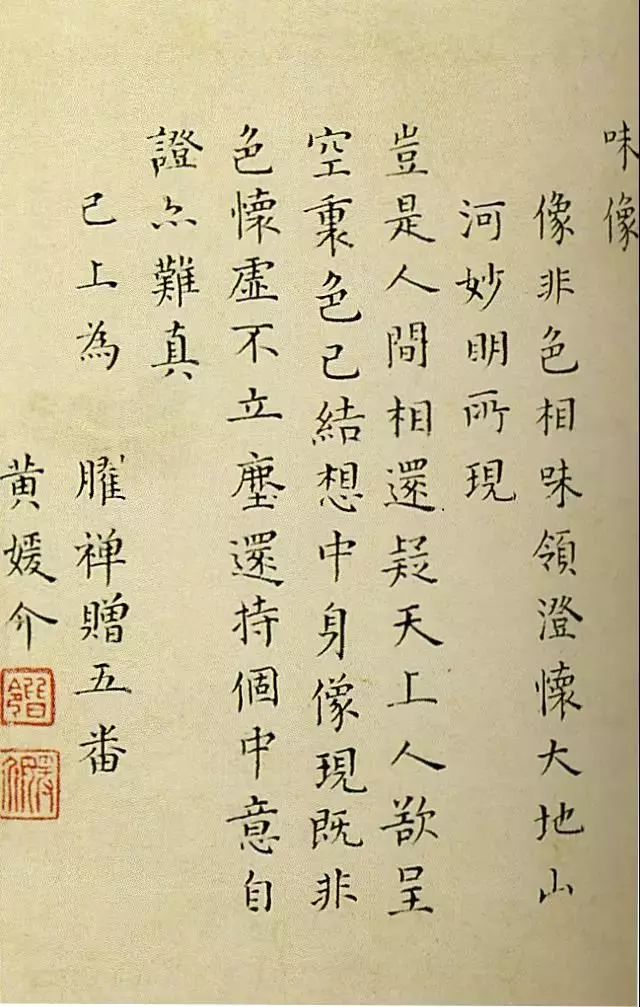 味像
像非色相味領澄懷大地山
河妙明所現
豈是人間相還疑天上人欲呈
空裏色已結想中身像現既非
色懷虛不立塵還持個中意自
證亦難真
已上為
臞禅贈五番
黄媛介